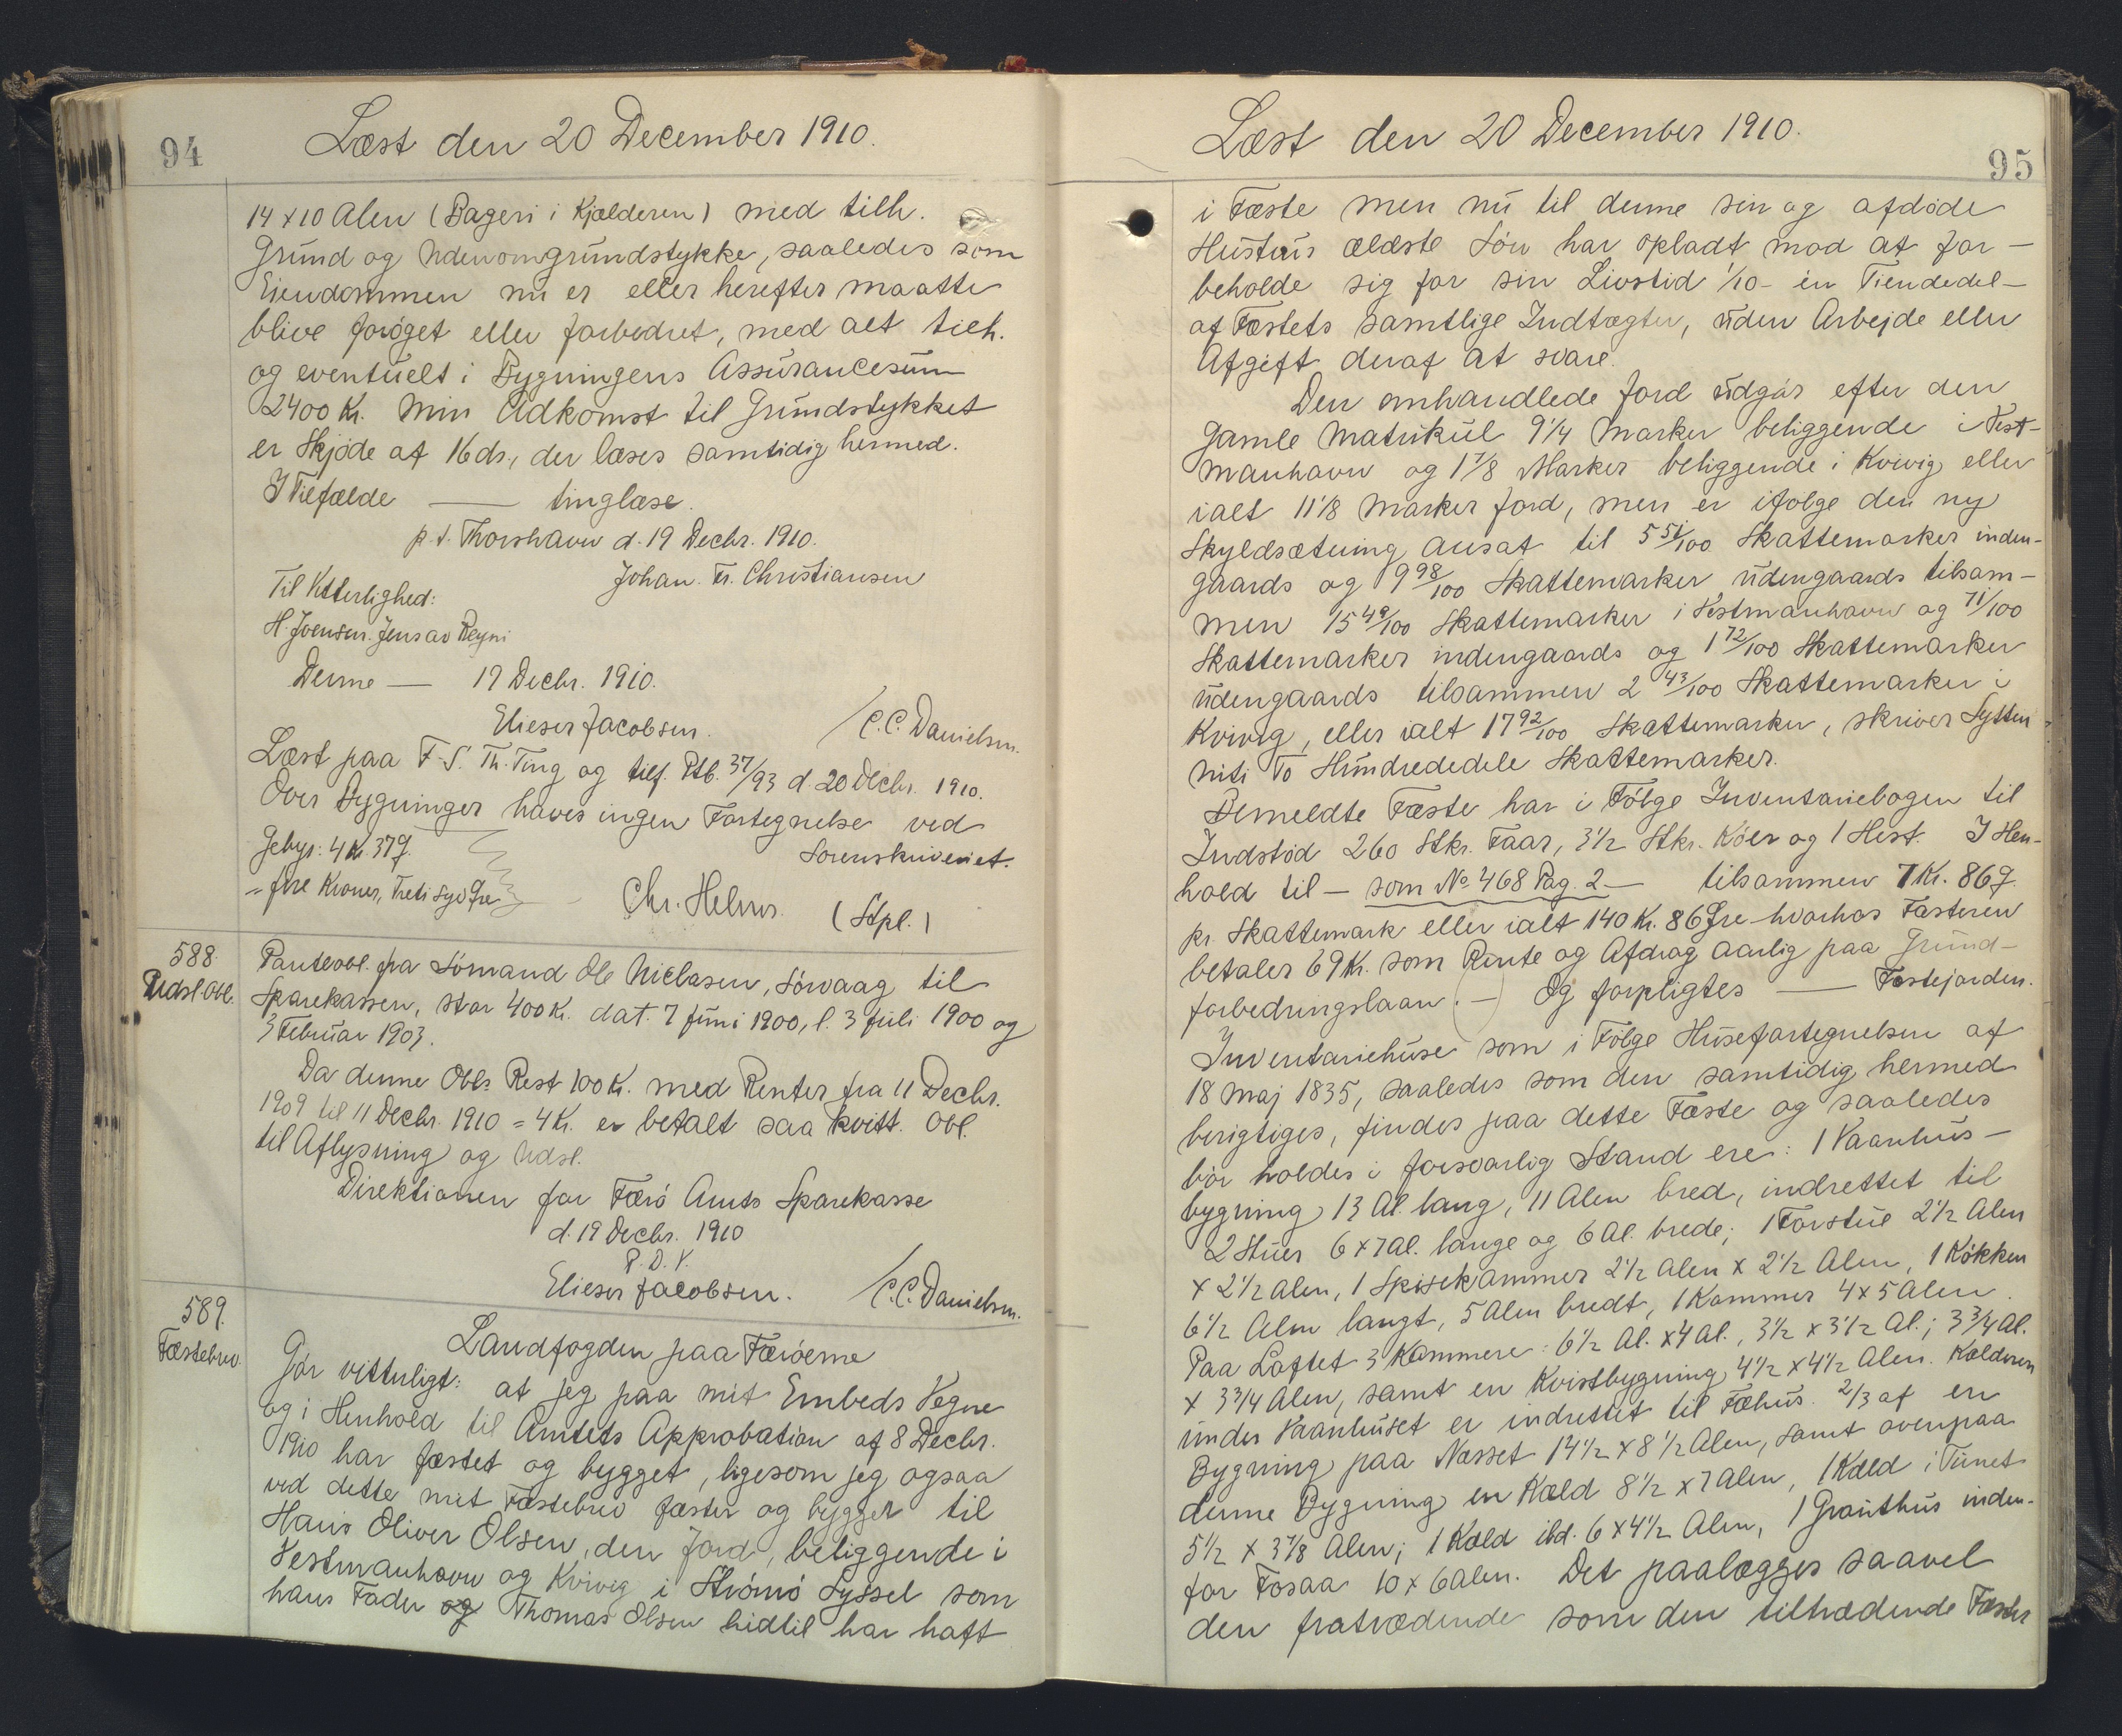 94
Læst den 20 December 1910.
14 x 10 Alen (Bageri i Kjælderen) med tilh.
Grund og Udenomgrundstykke, saaledes som
Eiendommen nu er eller herefter maatte
blive forøget eller forbedret, med alt tilh.
og eventuelt i Bygningens Assurancesum
2400 Kr. Min Adkomst til Grundstykket
er Skjøde af 16 ds., der læses samtidig hermed.
I Tilfælde — tinglæse.
p.t. Thorshavn d. 19 Decbr. 1910.
Johan. Fr. Christiansen
Til Vitterlighed:
H. Joensen. Jens av Reyni
Denne — 19 Decbr. 1910.
Elieser Jacobsen. / C.C. Danielsen.
Læst paa F-S. Th. Ting og tilf. Ptb. 37/93 d. 20 Decbr. 1910.
Over Bygninger haves ingen Fortegnelse ved
Sorenskriveriet.
Gebyr: 4 Kr. 37 Ø.
= fire Kroner, Treti syv Øre
Chr. Helmer. (Stpl.)
588.
Udsl. Obl.
Panteobl. fra Sømand Ole Niclasen, Sørvaag til
Sparekassen, stor 400 Kr. dat. 7 Juni 1900, l. 3 Juli 1900 og
3 Februar 1903.
Da denne Obls Rest 100 Kr. med Renter fra 11 Decbr.
1909 til 11 Decbr. 1910 = 4 Kr. er betalt saa kvitt. Obl.
til Aflysning og Udsl.
Direktionen for Færø Amts Sparekasse
d. 19 Decbr. 1910
P. D. V.
Elieser Jacobsen. / C.C. Danielsen.
589.
Fæstebrev.
Landfogden paa Færøerne
Gør vitterligt: at jeg paa mit Embeds Vegne
og i Henhold til Amtets Approbation af 8 Decbr.
1910 har fæstet og bygget, ligesom jeg ogsaa
ved dette mit Fæstebrev fæster og bygger til
Hans Oliver Olsen, den Jord, beliggende i
Vestmanhavn og Kvivig i Strømø Syssel som
hans Fader og Thomas Olsen hidtil har haft
Læst den 20 December 1910.
95
i Fæste men nu til denne sin og afdøde
Hustrus ældste Søn har opladt mod at for-
beholde sig for sin Livstid 1/10 - en Tiendedel -
af Fæstets samtlige Indtægter, uden Arbejde eller
Afgift deraf at svare.
Den omhandlede Jord udgør efter den
gamle Matrikul 9 1/4 Marker beliggende i Vest-
manhavn og 1 7/8 Marker beliggende i Kvivig eller
ialt 11 1/8 Marker Jord, men er ifølge den ny
Skyldsætning ansat til 5 51/100 Skattemarker inden-
gaards og 9 98/100 Skattemarker udengaards tilsam-
men 15 49/100 Skattemarker i Vestmanhavn og 71/100
Skattemarker indengaards og 1 72/100 Skattemarker
udengaards tilsammen 2 43/100 Skattemarker i
Kvivig, eller ialt 17 92/100 Skattemarker, skriver Sytten
niti To Hundrededele Skattemarker.
Bemeldte Fæste har i Følge Inventariebogen til
Indstød 260 Stkr. Faar, 3 1/2 Stkr. Køer og 1 Hest. I Hen-
hold til — som No. 468 Pag. 2 — tilsammen 7 Kr. 86 Ø.
pr. Skattemark eller ialt 140 Kr. 86 Øre hvorhos Fæsteren
betaler 69 Kr. som Rente og Afdrag aarlig paa Grund-
forbedringslaan. — Og forpligtes — Fæstejorden.
Inventariehuse som i Følge Husefortegnelsen af
18 Maj 1835, saaledes som den samtidig hermed
berigtiges, findes paa dette Fæste og saaledes
bør holdes i forsvarlig Stand ere: 1 Vaanhus-
bygning 13 Al. lang, 11 Alen bred, indrettet til
2 Stuer 6 x 7 Al. lange og 6 Al. brede; 1 Forstue 2 1/2 Alen
x 2 1/2 Alen, 1 Spisekammer 2 1/2 Alen x 2 1/2 Alen, 1 Køkken
6 1/2 Alen langt, 5 Alen bredt, 1 Kammer 4 x 5 Alen.
Paa Loftet 3 Kammere: 6 1/2 Al. x 4 Al., 3 1/2 x 3 1/2 Al.; 3 3/4 Al.
x 3 3/4 Alen, samt en Kvistbygning 4 1/2 x 4 1/2 Alen. Kælderen
under Vaanhuset er indrettet til Fæhus. 2/3 af en
Bygning paa Næsset 14 1/2 x 8 1/2 Alen, samt ovenpaa
denne Bygning en Kæld 8 1/2 x 7 Alen, 1 Kæld i Tunet
5 1/2 x 3 7/8 Alen; 1 Kæld ibd. 6 x 4 1/2 Alen, 1 Grauthus inden-
for Fosaa 10 x 6 Alen. Det paalægges saavel
den fratrædende som den tiltrædende Fæster